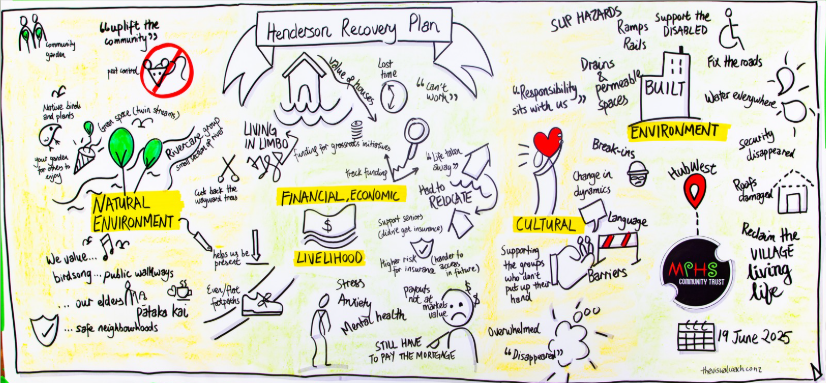 Henderson Recovery Plan
"uplift the
community"
community
garden
pest control
Native birds
and plants
Green space (twin streams)
your garden
for others to
enjoy
Rivercare group
NATURAL
ENVIRONMENT
Cut back the
wayward trees
We value...
birdsong... public walkways
... our elders
Pātaka kai
... safe neighbourhoods
helps us be
present
Even/flat
footpaths
Value of houses
Lost
time
"Can't
work"
LIVING
IN LIMBO
funding for grassroots initiatives
track funding
"Life taken
away"
Had to
RELOCATE
FINANCIAL, ECONOMIC
$
LIVELIHOOD
Support seniors
(didn't get insurance)
Higher risk (harder to
for insurance access
in future)
Stress
Anxiety
Mental health
payouts
not at
market
value
$
$
STILL HAVE
TO PAY THE MORTGAGE
SLIP HAZARDS
Ramps
Rails
Support the
DISABLED
Drains
&
permeable
spaces
"Responsibility
sits with us"
BUILT
ENVIRONMENT
Fix the roads
Water everywhere
security
disappeared
Roofs
damaged
Break-ins
Change in
dynamics
CULTURAL
Language
Barriers
Supporting
the groups
who don't
put up their
hand
Overwhelmed
"Disappeared"
HubWest
MPHS
COMMUNITY TRUST
Reclaim the
VILLAGE
living
life
19 June 2025
thevisualcoach.co.nz